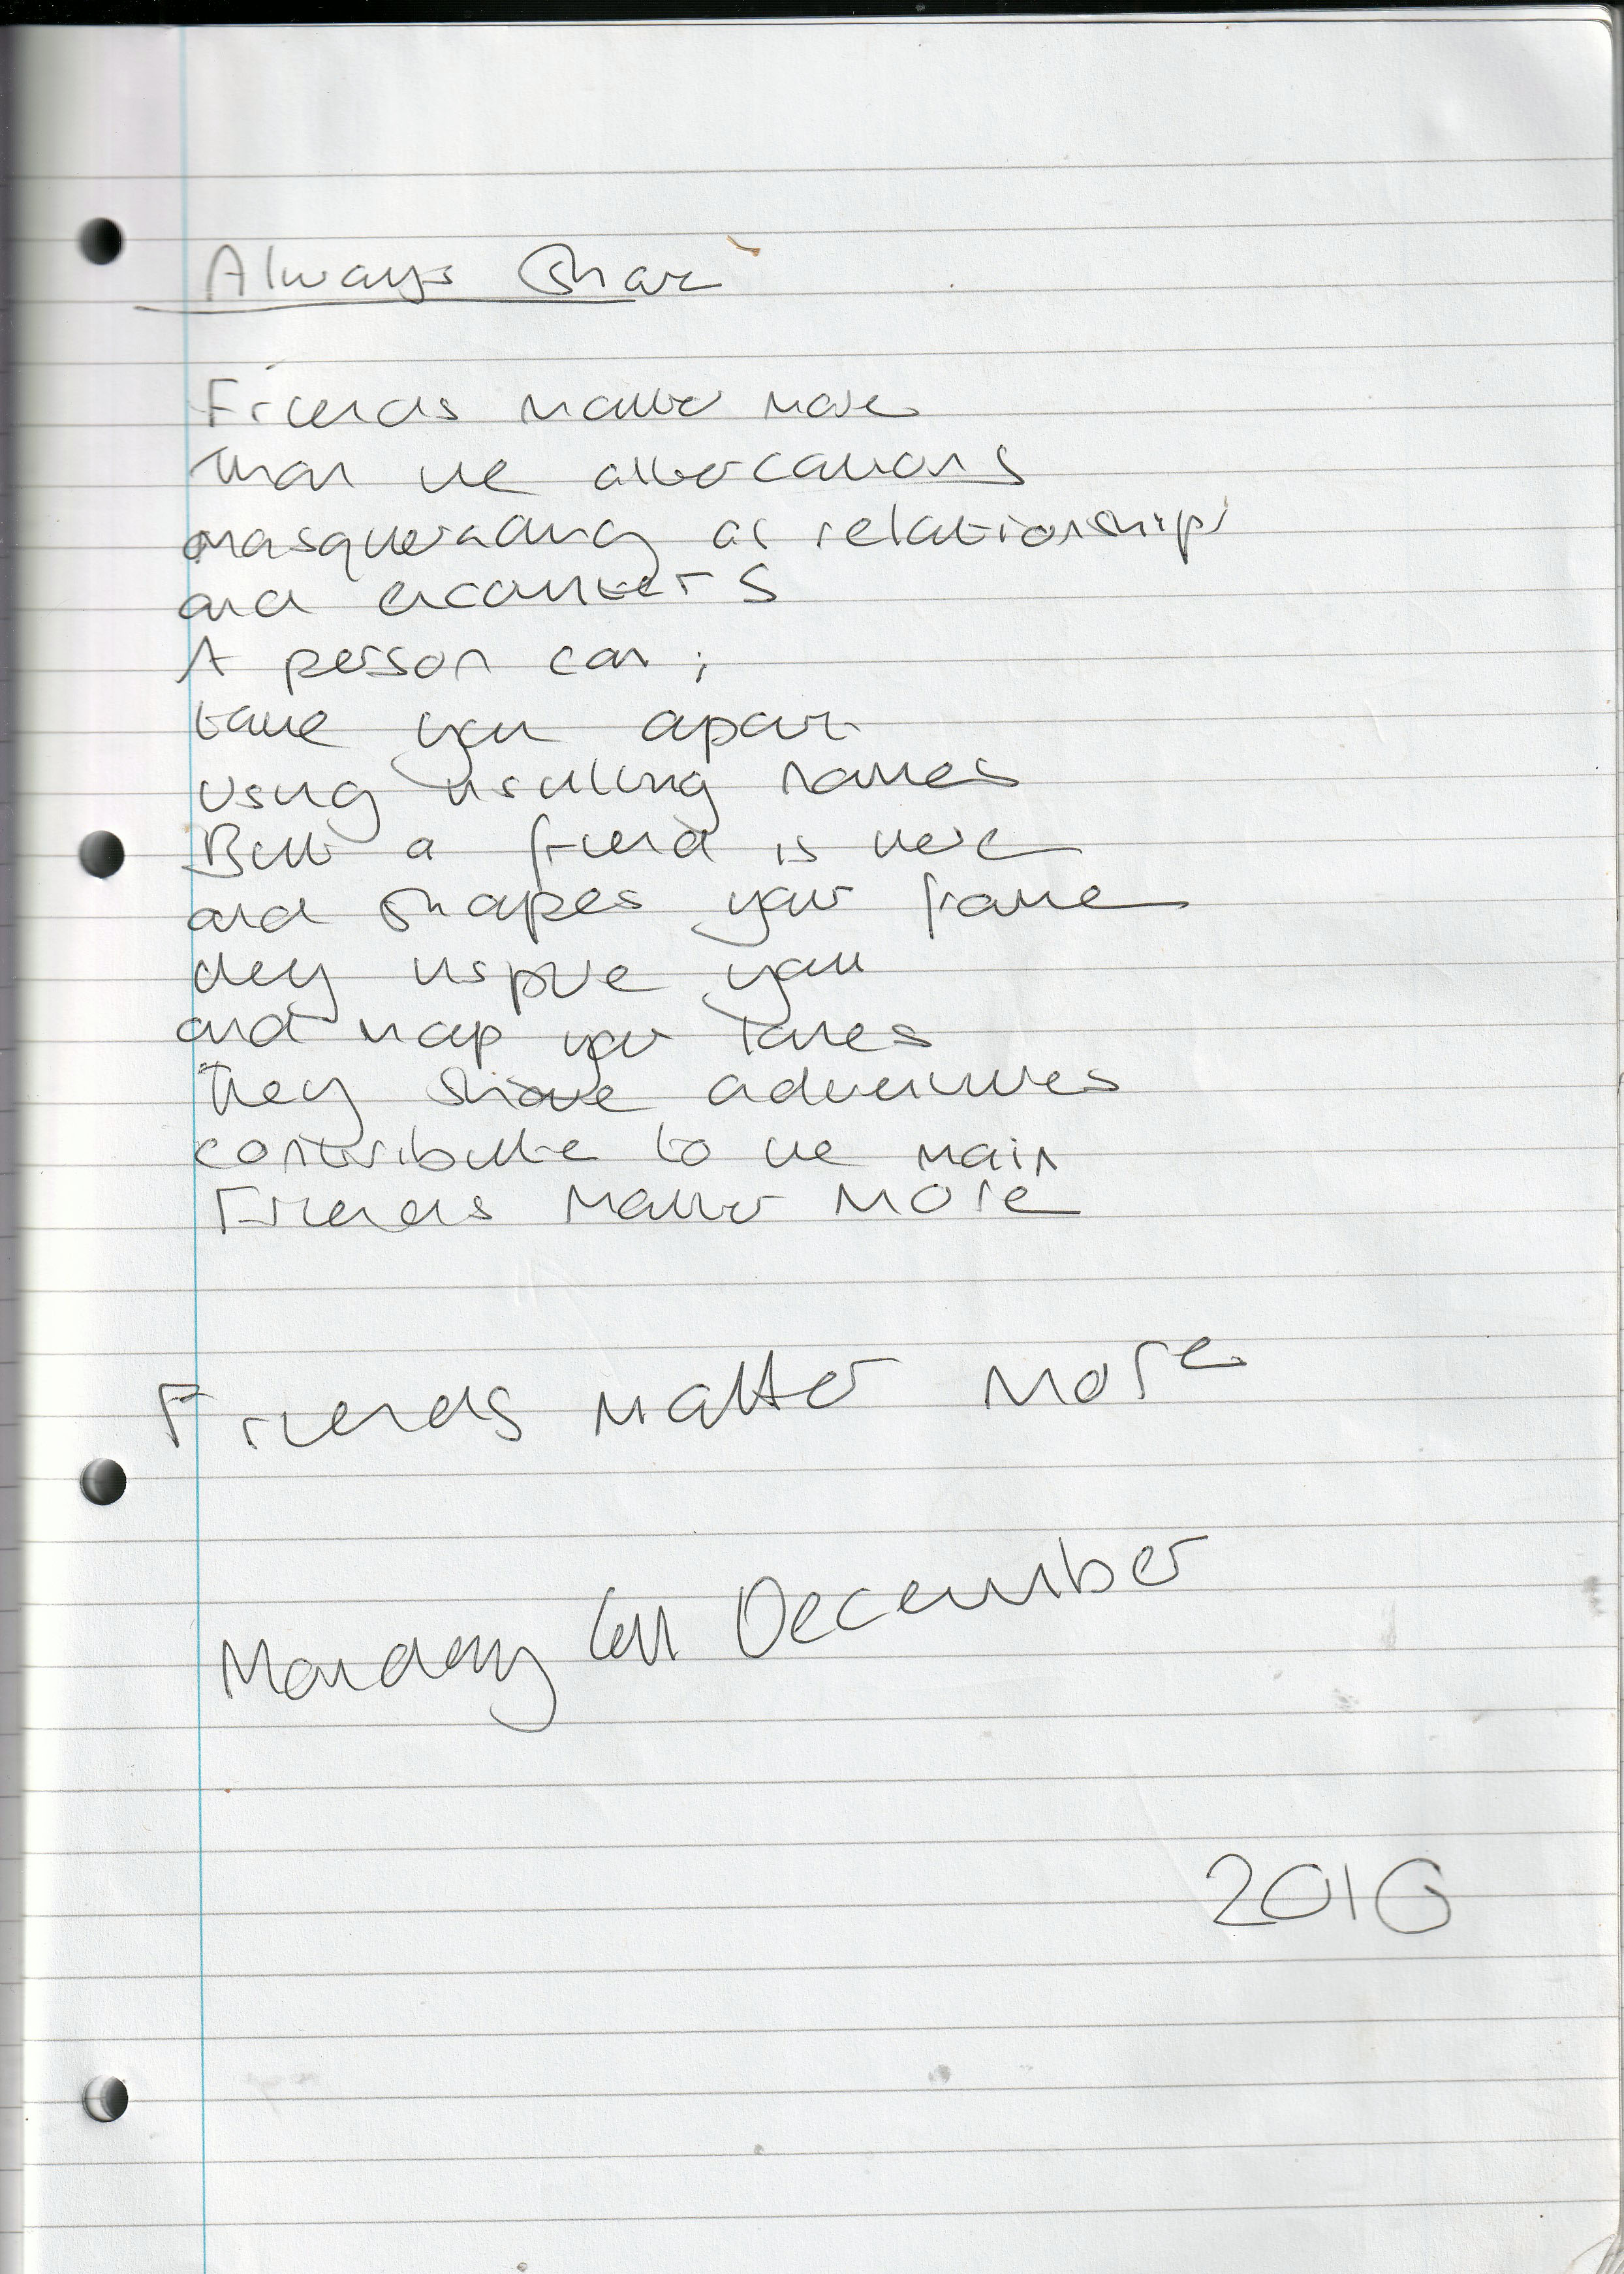 Always Share
Friends matter more
than the altercations
masquerading as relationships
and encounters
A person can;
take you apart
using insulting names
But a friend is here
and shapes your frame
they inspire you
and map your lanes
They share adventures
contribute to the main
Friends Matter More
Friends Matter More
Monday December
2016